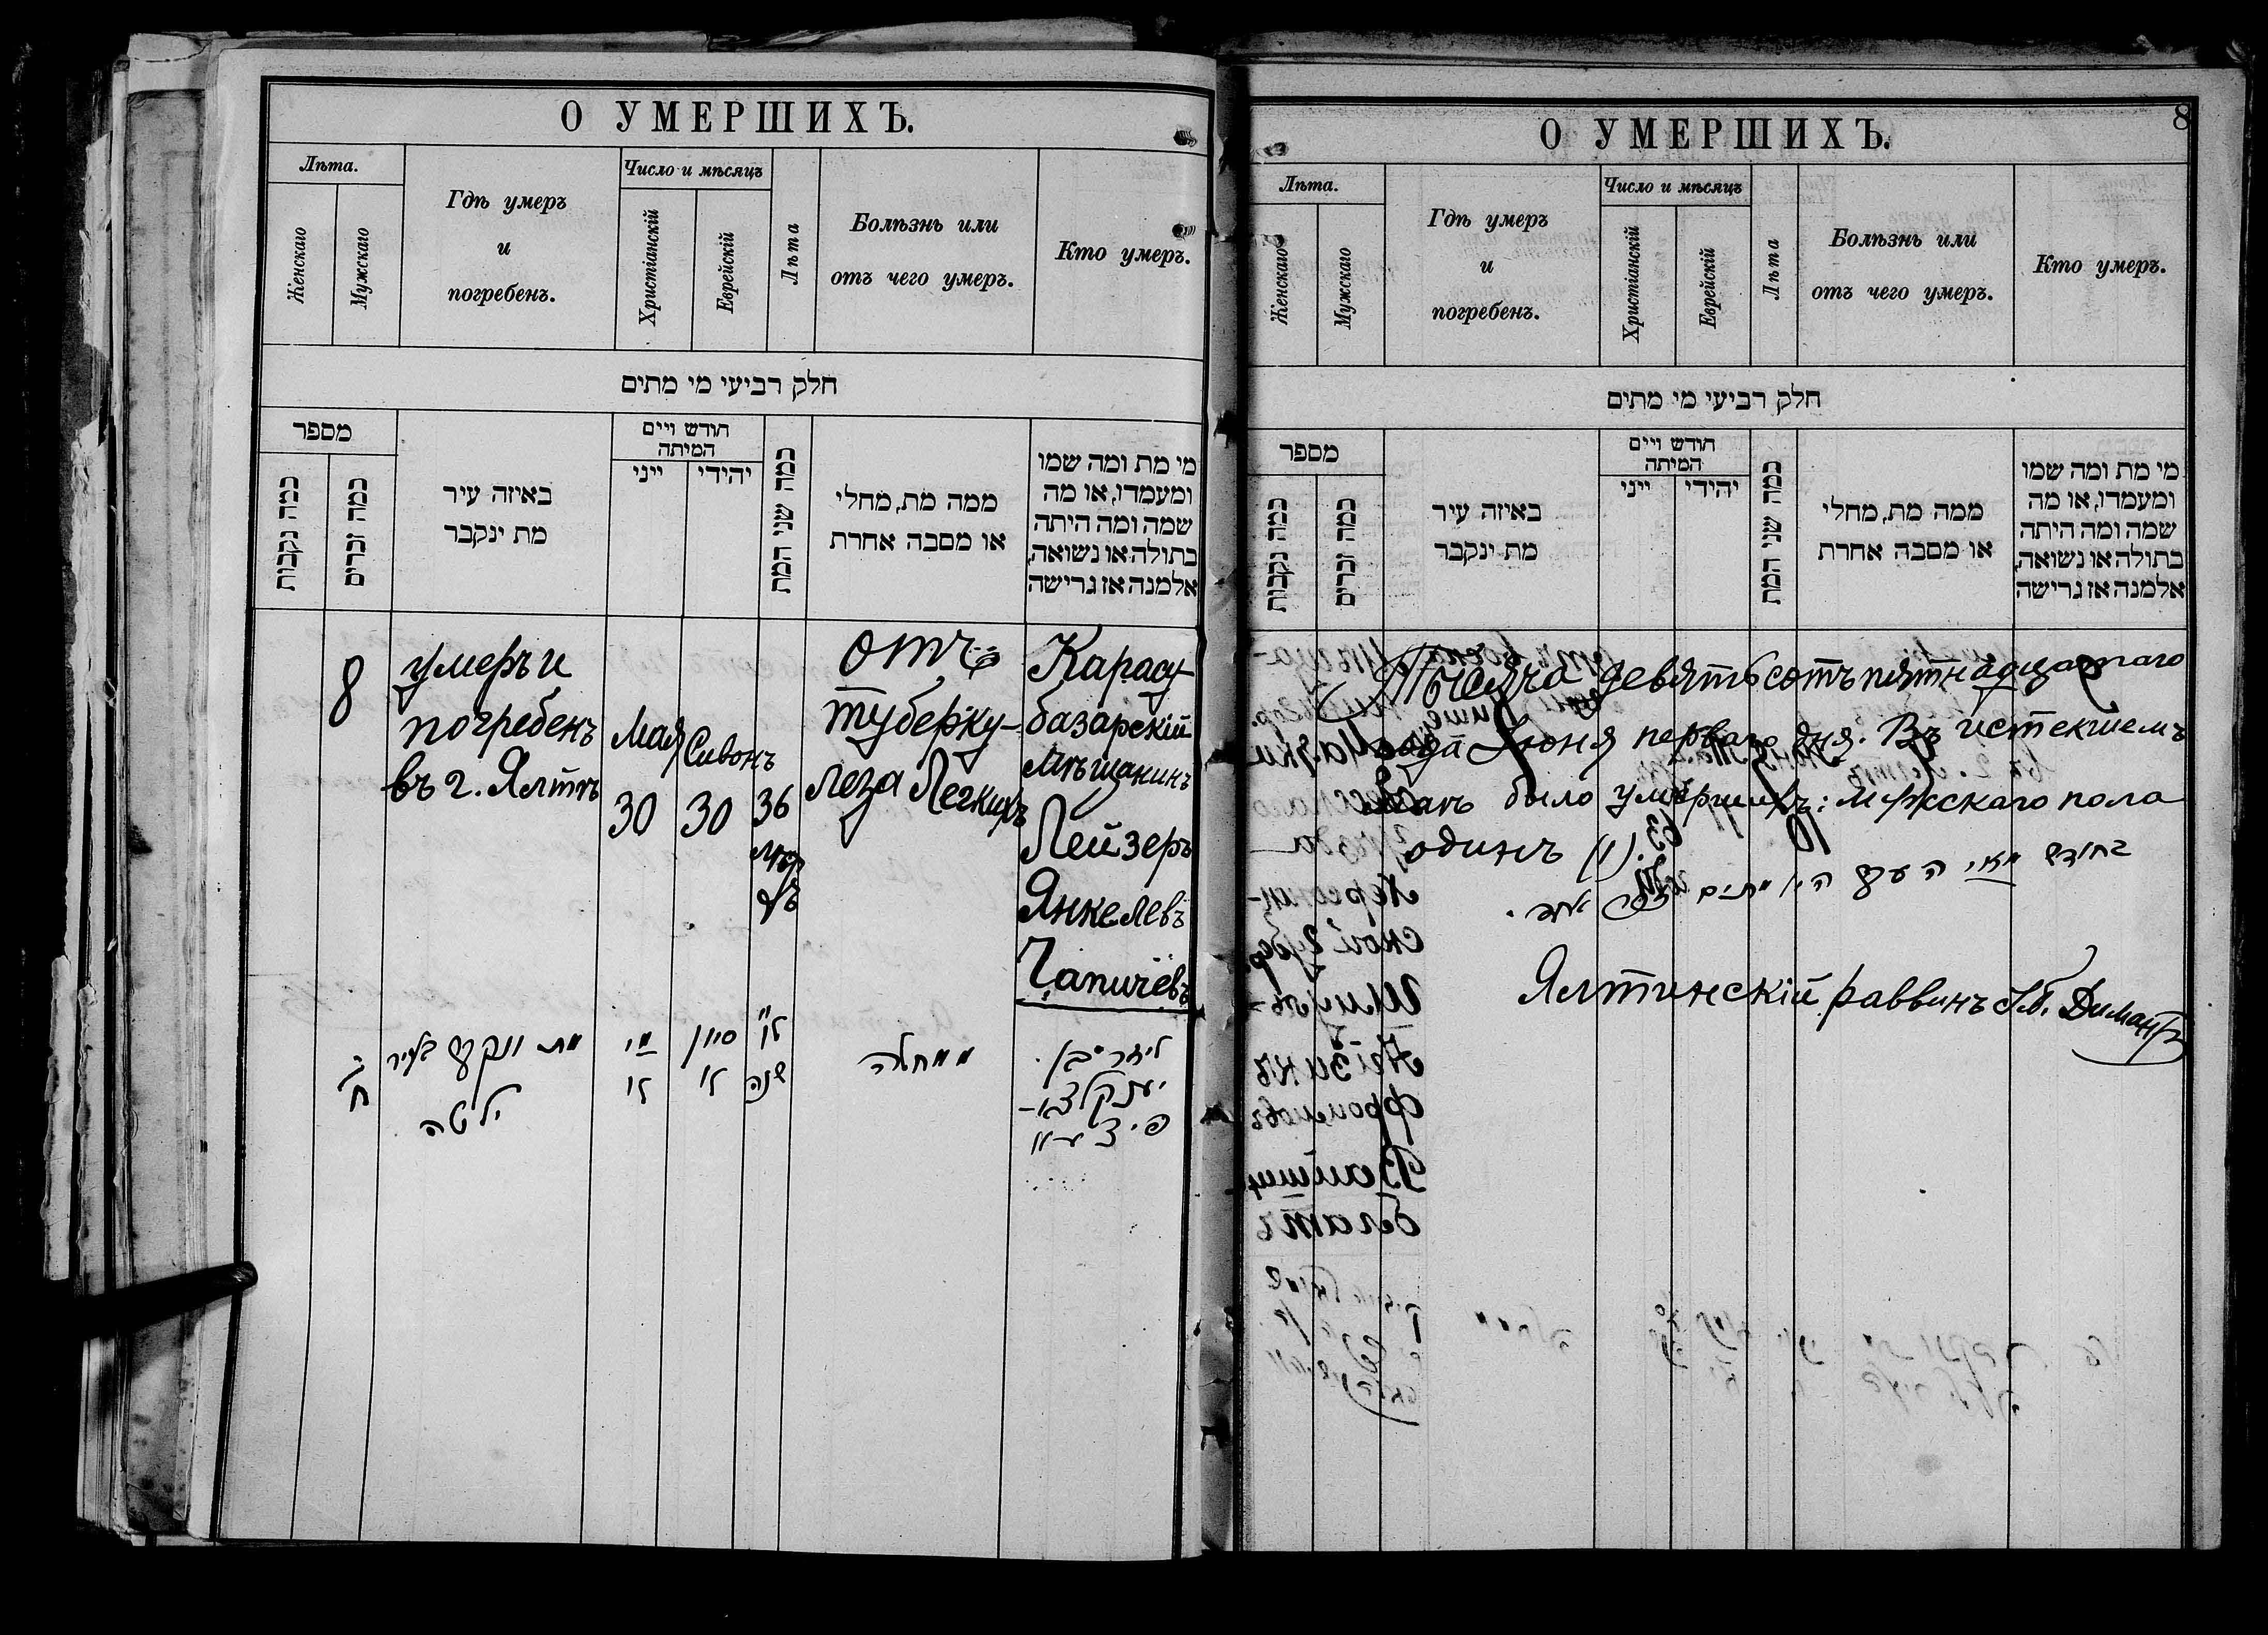 О УМЕРШИХЪ.
Лѣта.
Женскаго
Мужскаго
Гдѣ умеръ
и
погребенъ.
Число и мѣсяцъ
Христіанскій
Еврейскій
Лѣта
Болѣзнь или
отъ чего умеръ.
Кто умеръ.
חלק רביעי מי מתים
מספר
כמה נקבות
כמה זכרים
באיזה עיר
מת ינקבר
חודש ויים
המיתה
ייני
יהידי
כמה שני המת
ממה מת, מחלי
או מסבה אחרת
מי מת ומה שמו
ומעמדו, או מה
שמה ומה היתה
בתולה או נשואה,
אלמנה אז גרישה
8
умеръ и
погребенъ
въ г. Ялтѣ
Мая
30
Сивонъ
30
36
отъ
туберку-
леза Легкихъ
Карасу-
базарскій
мѣщанинъ
Лейзеръ
Янкелевъ
Чапичёвъ
ח
מת ונקבר בעיר
ילטה
מאי
לו
סיון
לו
שנה
ממחלה
ליזר בן
О УМЕРШИХЪ.
8
Лѣта.
Женскаго
Мужскаго
Гдѣ умеръ
и
погребенъ.
Число и мѣсяцъ
Христіанскій
Еврейскій
Лѣта
Болѣзнь или
отъ чего умеръ.
Кто умеръ.
חלק רביעי מי מתים
מספר
כמה נקבות
כמה זכרים
באיזה עיר
מת ינקבר
חודש ויים
המיתה
ייני
יהידי
כמה שני המת
ממה מת, מחלי
או מסבה אחרת
מי מת ומה שמו
ומעמדו, או מה
שמה ומה היתה
בתולה או נשואה,
אלמנה אז גרישה
Тысяча девятьсотъ пятнадцатаго
года Іюня перваго дня. Въ истекшемъ
Маѣ было умершихъ: мужскаго пола
одинъ (1).
בחודש מאי היו מתים
Ялтинскій раввинъ Димантъ